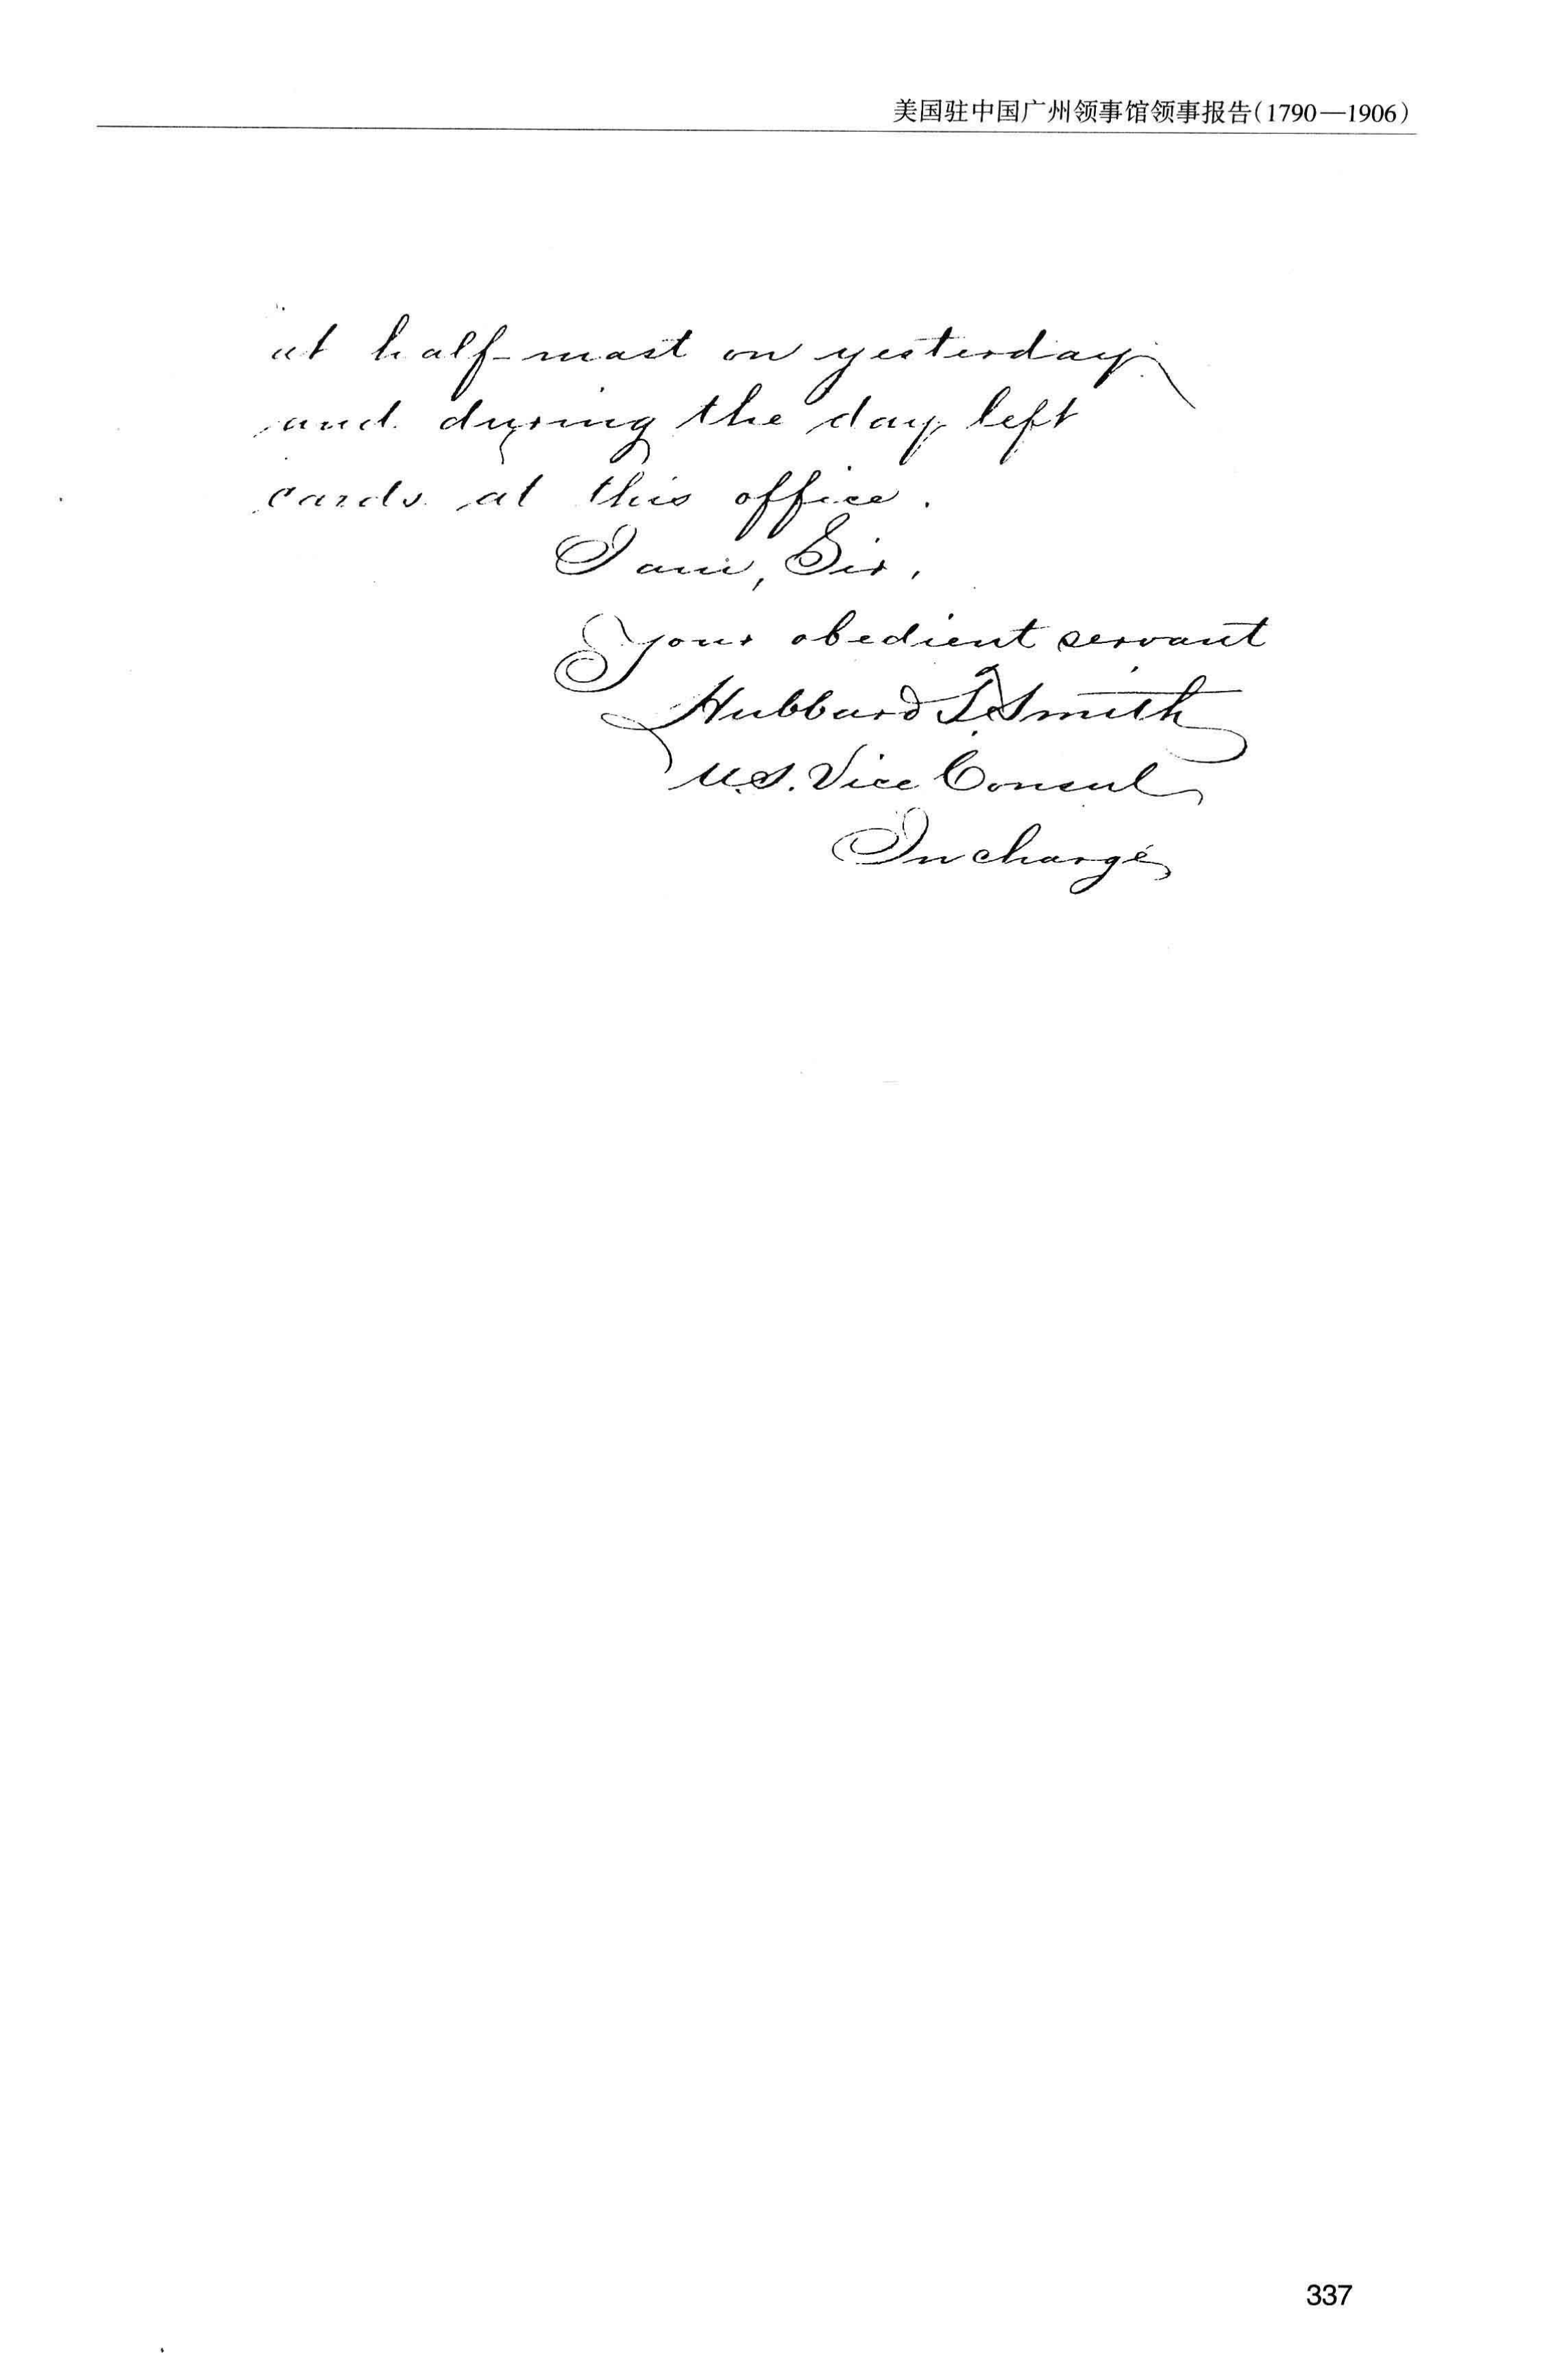 美国驻中国广州领事馆领事报告(1790—1906)
at half-mast on yesterday
and during the day left
cards at this office.
I am, Sir,
your obedient servant
Hubbard T. Smith
U.S. Vice Consul
In charge
337